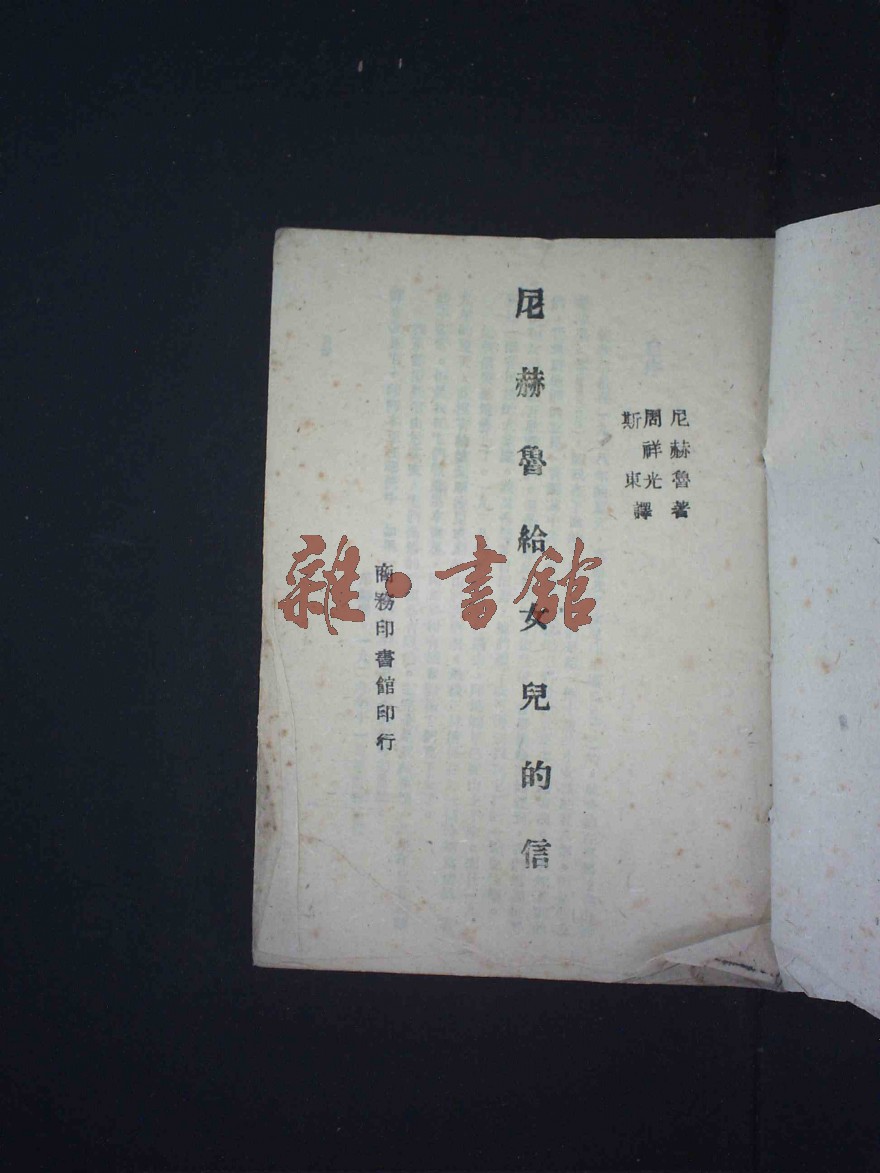 尼赫魯著
周祥光
斯東譯
尼赫魯給女兒的信
商務印書館印行
雜·書館